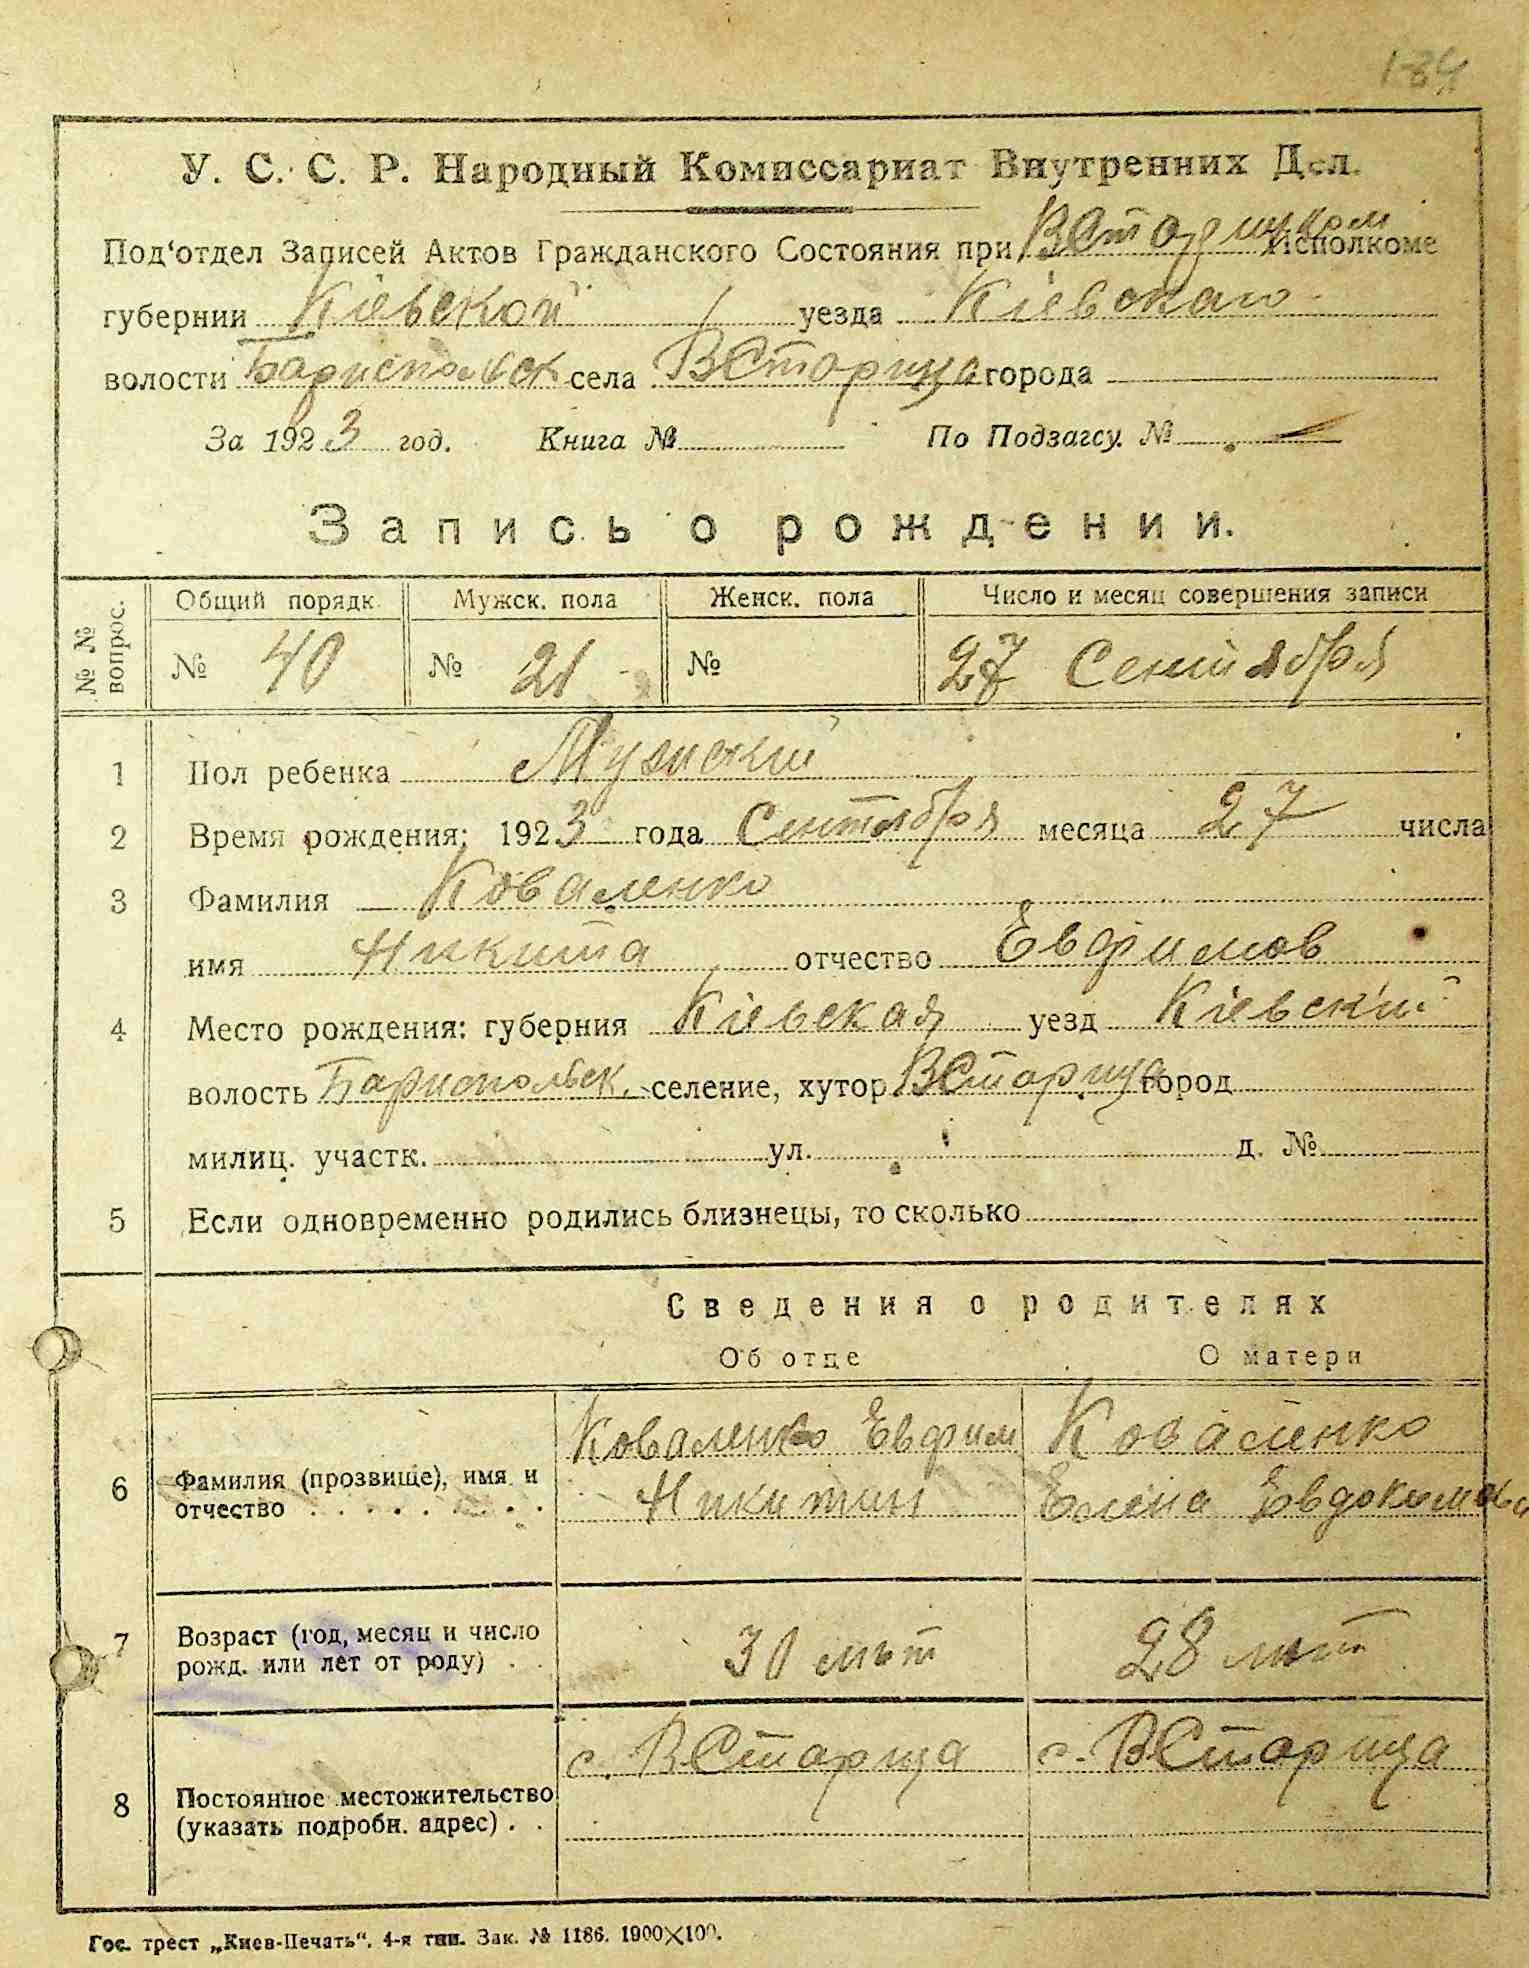 184
У. С. С. Р. Народный Комиссариат Внутренних Дел.
Под‘отдел Записей Актов Гражданского Состояния при Исполкоме
губернии Кіевской уезда Кіевскаго
волости Бариспольск села ВСтарица города
За 1923 год. Книга № По Подзагсу. №
Запись о рождении.
№ № вопрос. Общий порядк. Мужск. пола Женск. пола Число и месяц совершения записи
№ 40 № 21 № 27 Сентября
1 Пол ребенка Мужский
2 Время рождения: 1923 года Сентября месяца 27 числа
3 Фамилия Коваленко
имя Никита отчество Евфимов
4 Место рождения: губерния Кіевская уезд Кіевский
волость Бариспольск. селение, хутор ВСтарица город
милиц. участк. ул. д. №
5 Если одновременно родились близнецы, то сколько
Сведения о родителях
Об отце О матери
Коваленко Евфим Коваленко
6 Фамилия (прозвище), имя и отчество Никитин Елена Евдокимова
7 Возраст (год, месяц и число рожд. или лет от роду) 30 лѣт 28 лѣт
с. ВСтарица с. ВСтарица
8 Постоянное местожительство (указать подробн. адрес)
Гос. трест „Киев-Печать“. 4-я тип. Зак. № 1186. 1900×100.